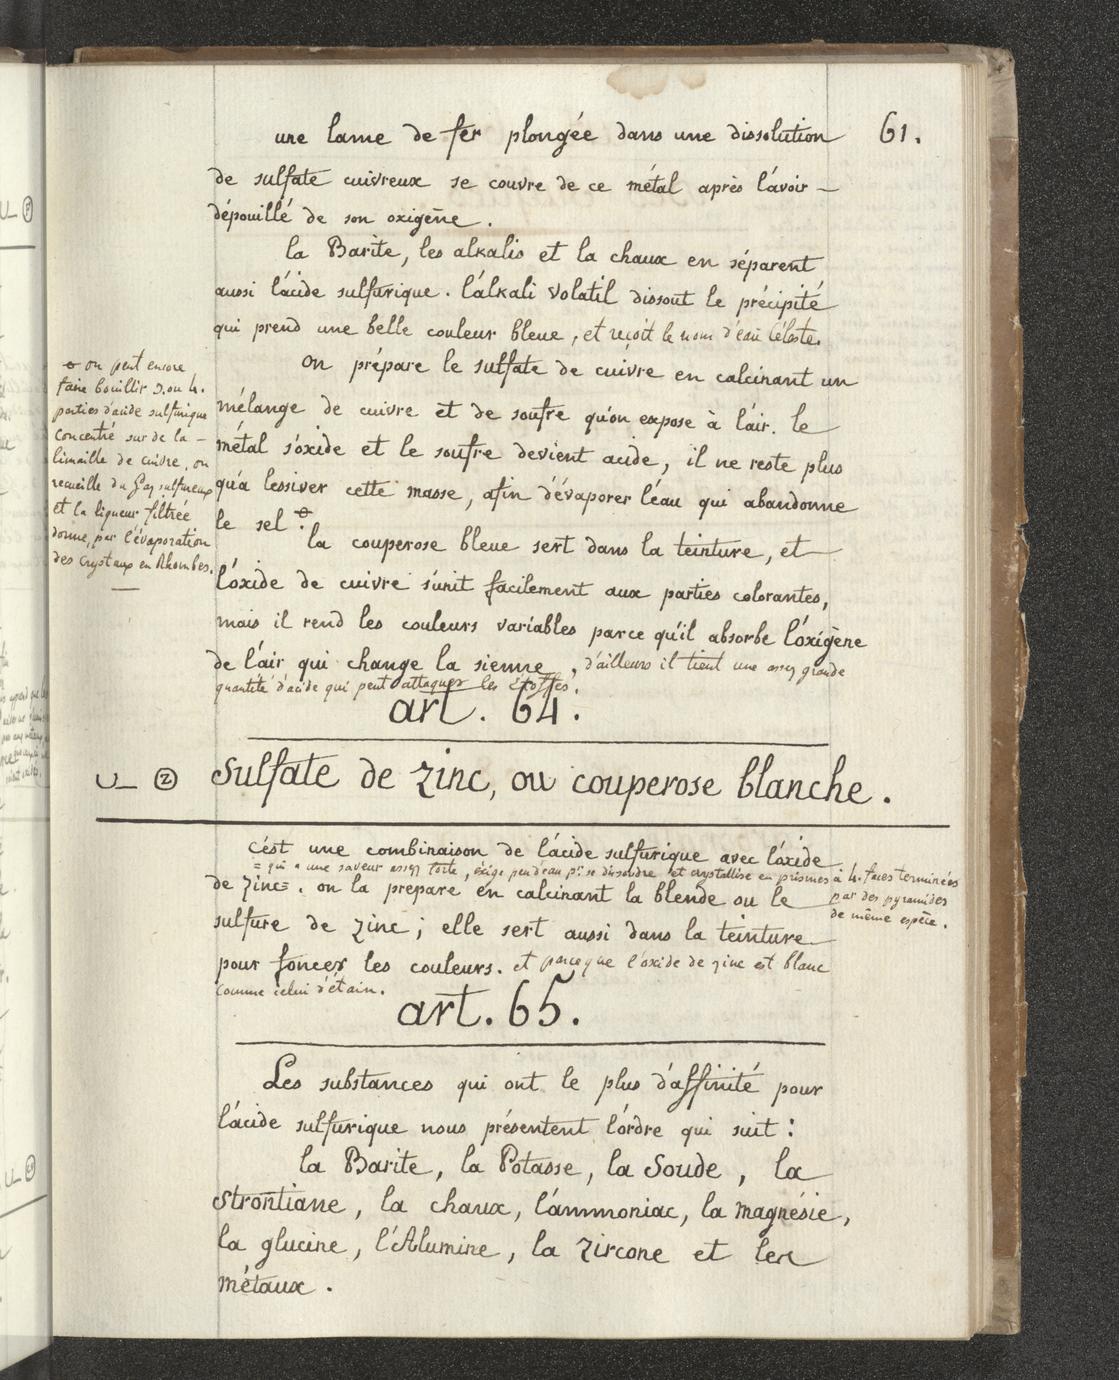 61.
une lame de fer plongée dans une dissolution
de sulfate cuivreux se couvre de ce métal après l'avoir
dépouillé de son oxigène.
la Barite, les alkalis et la chaux en séparent
aussi l'acide sulfurique. l'alkali volatil dissout le précipité
qui prend une belle couleur bleue, et reçoit le nom d'eau Céleste.
On prépare le sulfate de cuivre en calcinant un
mélange de cuivre et de soufre qu'on expose à l'air. le
métal s'oxide et le soufre devient acide, il ne reste plus
qu'a lessiver cette masse, afin d'évaporer l'eau qui abandonne
le sel.
on peut encore
faire bouillir 3. ou 4.
parties d'acide sulfurique
Concentré sur de la
limaille de cuivre, on
recueille du Gaz sulfureux
et la liqueur filtrée
donne, par l'évaporation
des crystaux en Rhombes.
la couperose bleue sert dans la teinture, et
l'oxide de cuivre s'unit facilement aux parties colorantes,
mais il rend les couleurs variables parce qu'il absorbe l'oxigène
de l'air qui change la sienne, d'ailleurs il tient une assez grande
quantité d'acide qui peut attaquer les étoffes.
art. 64.
Sulfate de zinc, ou couperose blanche.
c'est une combinaison de l'acide sulfurique avec l'oxide
= qui a une saveur assez forte, exige peu d'eau pr. se dissoudre et crystallise en prismes à 4. faces terminées
par des pyramides
de même espèce.
de zinc=. on la prépare en calcinant la blende ou le
sulfure de zinc; elle sert aussi dans la teinture
pour foncer les couleurs. et parceque l'oxide de zinc est blanc
comme celui d'étain.
art. 65.
Les substances qui ont le plus d'affinité pour
l'acide sulfurique nous présentent l'ordre qui suit:
la Barite, la Potasse, la Soude, la
Strontiane, la chaux, l'ammoniac, la magnésie,
la glucine, l'Alumine, la zircone et les
métaux.